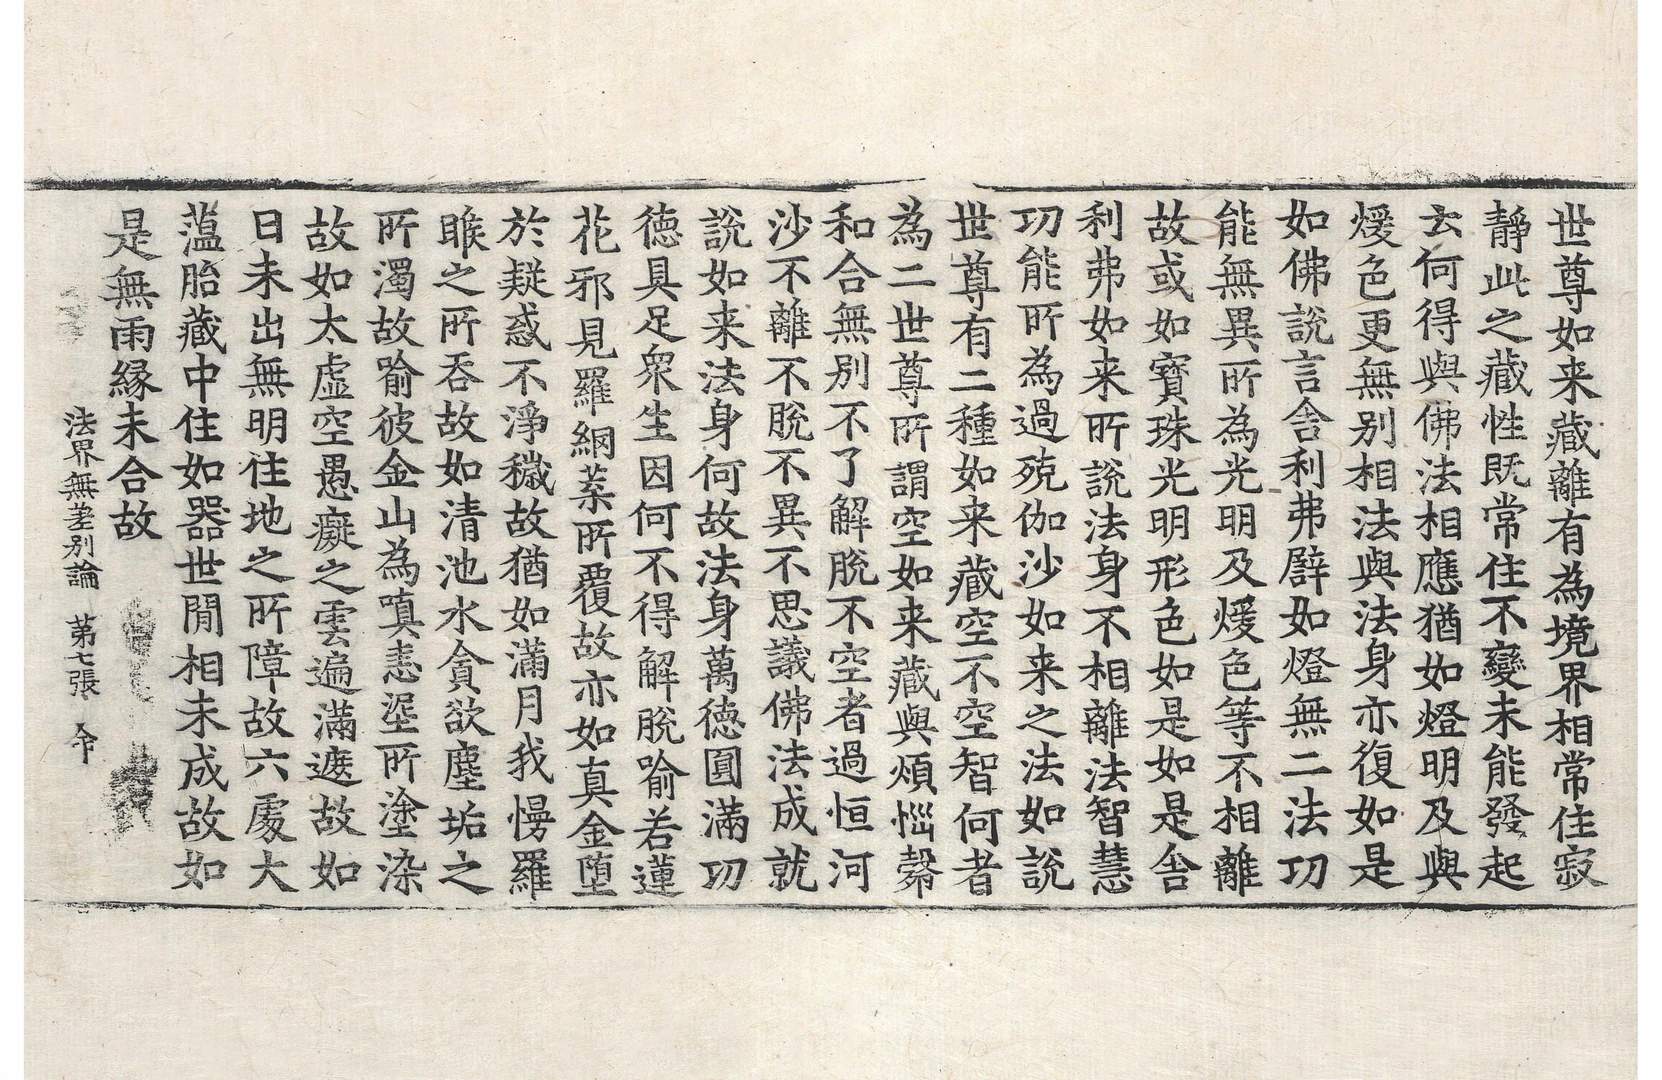 世尊如来藏離有為境界相常住寂
靜此之藏性既常住不變未能發起
云何得與佛法相應猶如燈明及與
煖色更無別相法與法身亦復如是
如佛說言舍利弗譬如燈無二法㓛
能無異所為光明及煖色等不相離
故或如寶珠光明形色如是如是舍
利弗如来所說法身不相離法智慧
㓛能所為過殑伽沙如来之法如說
世尊有二種如来藏空不空智何者
為二世尊所謂空如来藏與煩惱㲉
和合無別不了解脫不空者過恒河
沙不離不脫不異不思議佛法成就
說如来法身何故法身萬德圓滿㓛
德具足衆生因何不得解脫喻若蓮
花邪見羅網葉所覆故亦如真金墮
於疑惑不淨穢故猶如滿月我慢羅
睺之所吞故如清池水貪欲塵垢之
所濁故喻彼金山為嗔恚埿所塗染
故如太虛空愚癡之雲遍滿遮故如
日未出無明住地之所障故六處大
薀胎藏中住如器世閒相未成故如
是無雨縁未合故
法界無差别論 第七張 命